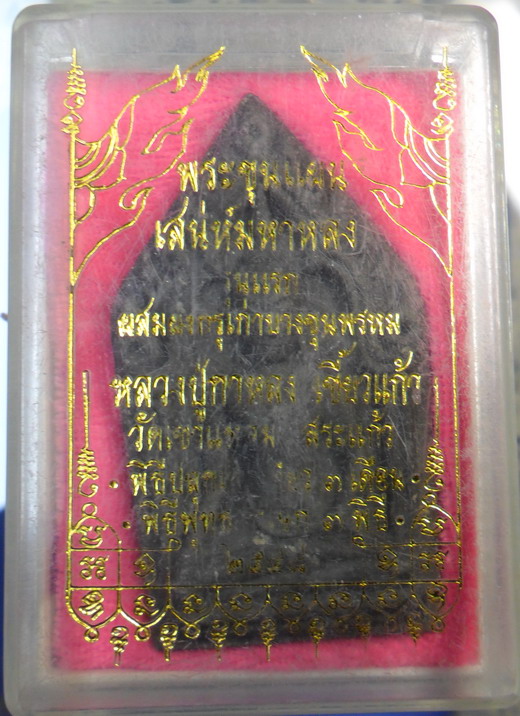 พระขุนแผน
เสน่ห์มหาหลง
รุ่นแรก
ผสมผงกรุเก่าบางขุนพรหม
หลวงปู่กาหลง เขี้ยวแก้ว
วัดเขาแหลม สระแก้ว
พิธีปลุก ๓ เดือน
พิธีพุทธ ๓ พิธี